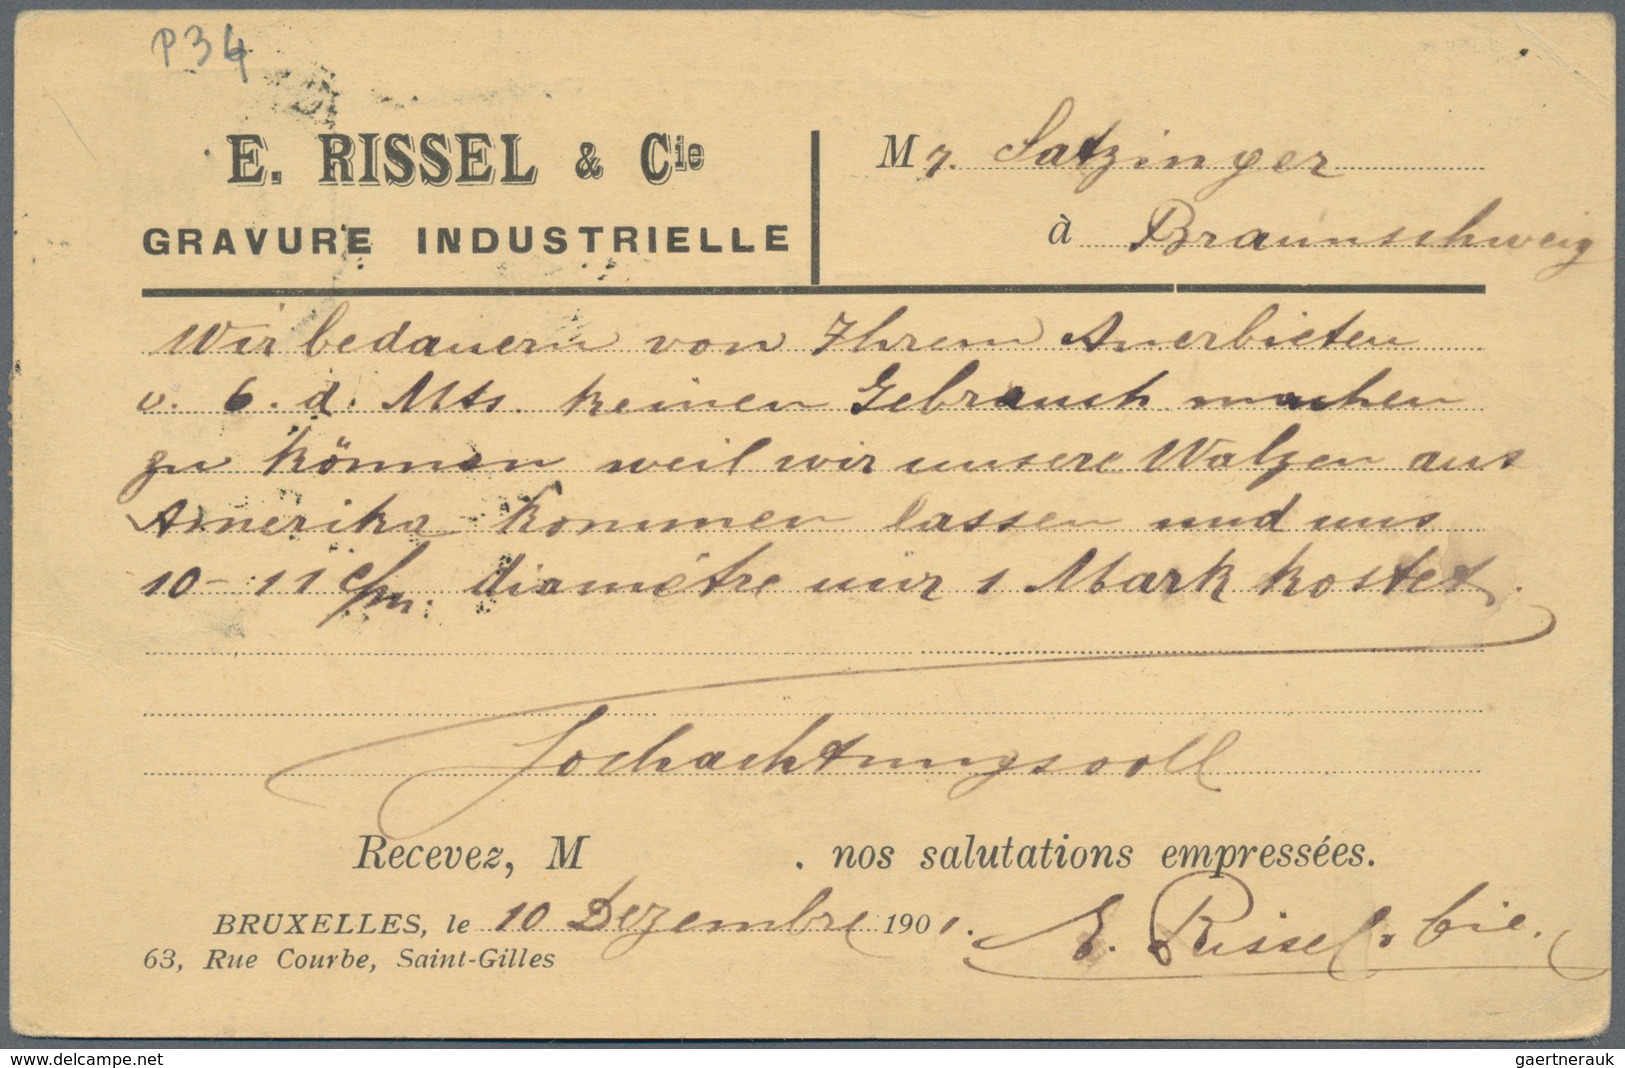 P34
E. RISSEL & Cie
GRAVURE INDUSTRIELLE
Mr. Satzinger
à Braunschweig
Wir bedauern von Ihrem Anerbieten
v. 6. d. Mts. keinen Gebrauch machen
zu können weil wir unsere Walzen aus
Amerika kommen lassen und uns
10-11 c/m. diamètre nur 1 Mark kostet.
Hochachtungsvoll
Recevez, M . nos salutations empressées.
BRUXELLES, le 10 Dezembre 1901.
63, Rue Courbe, Saint-Gilles
E. Rissel & Cie.
www.delcampe.net
gaertnerauk